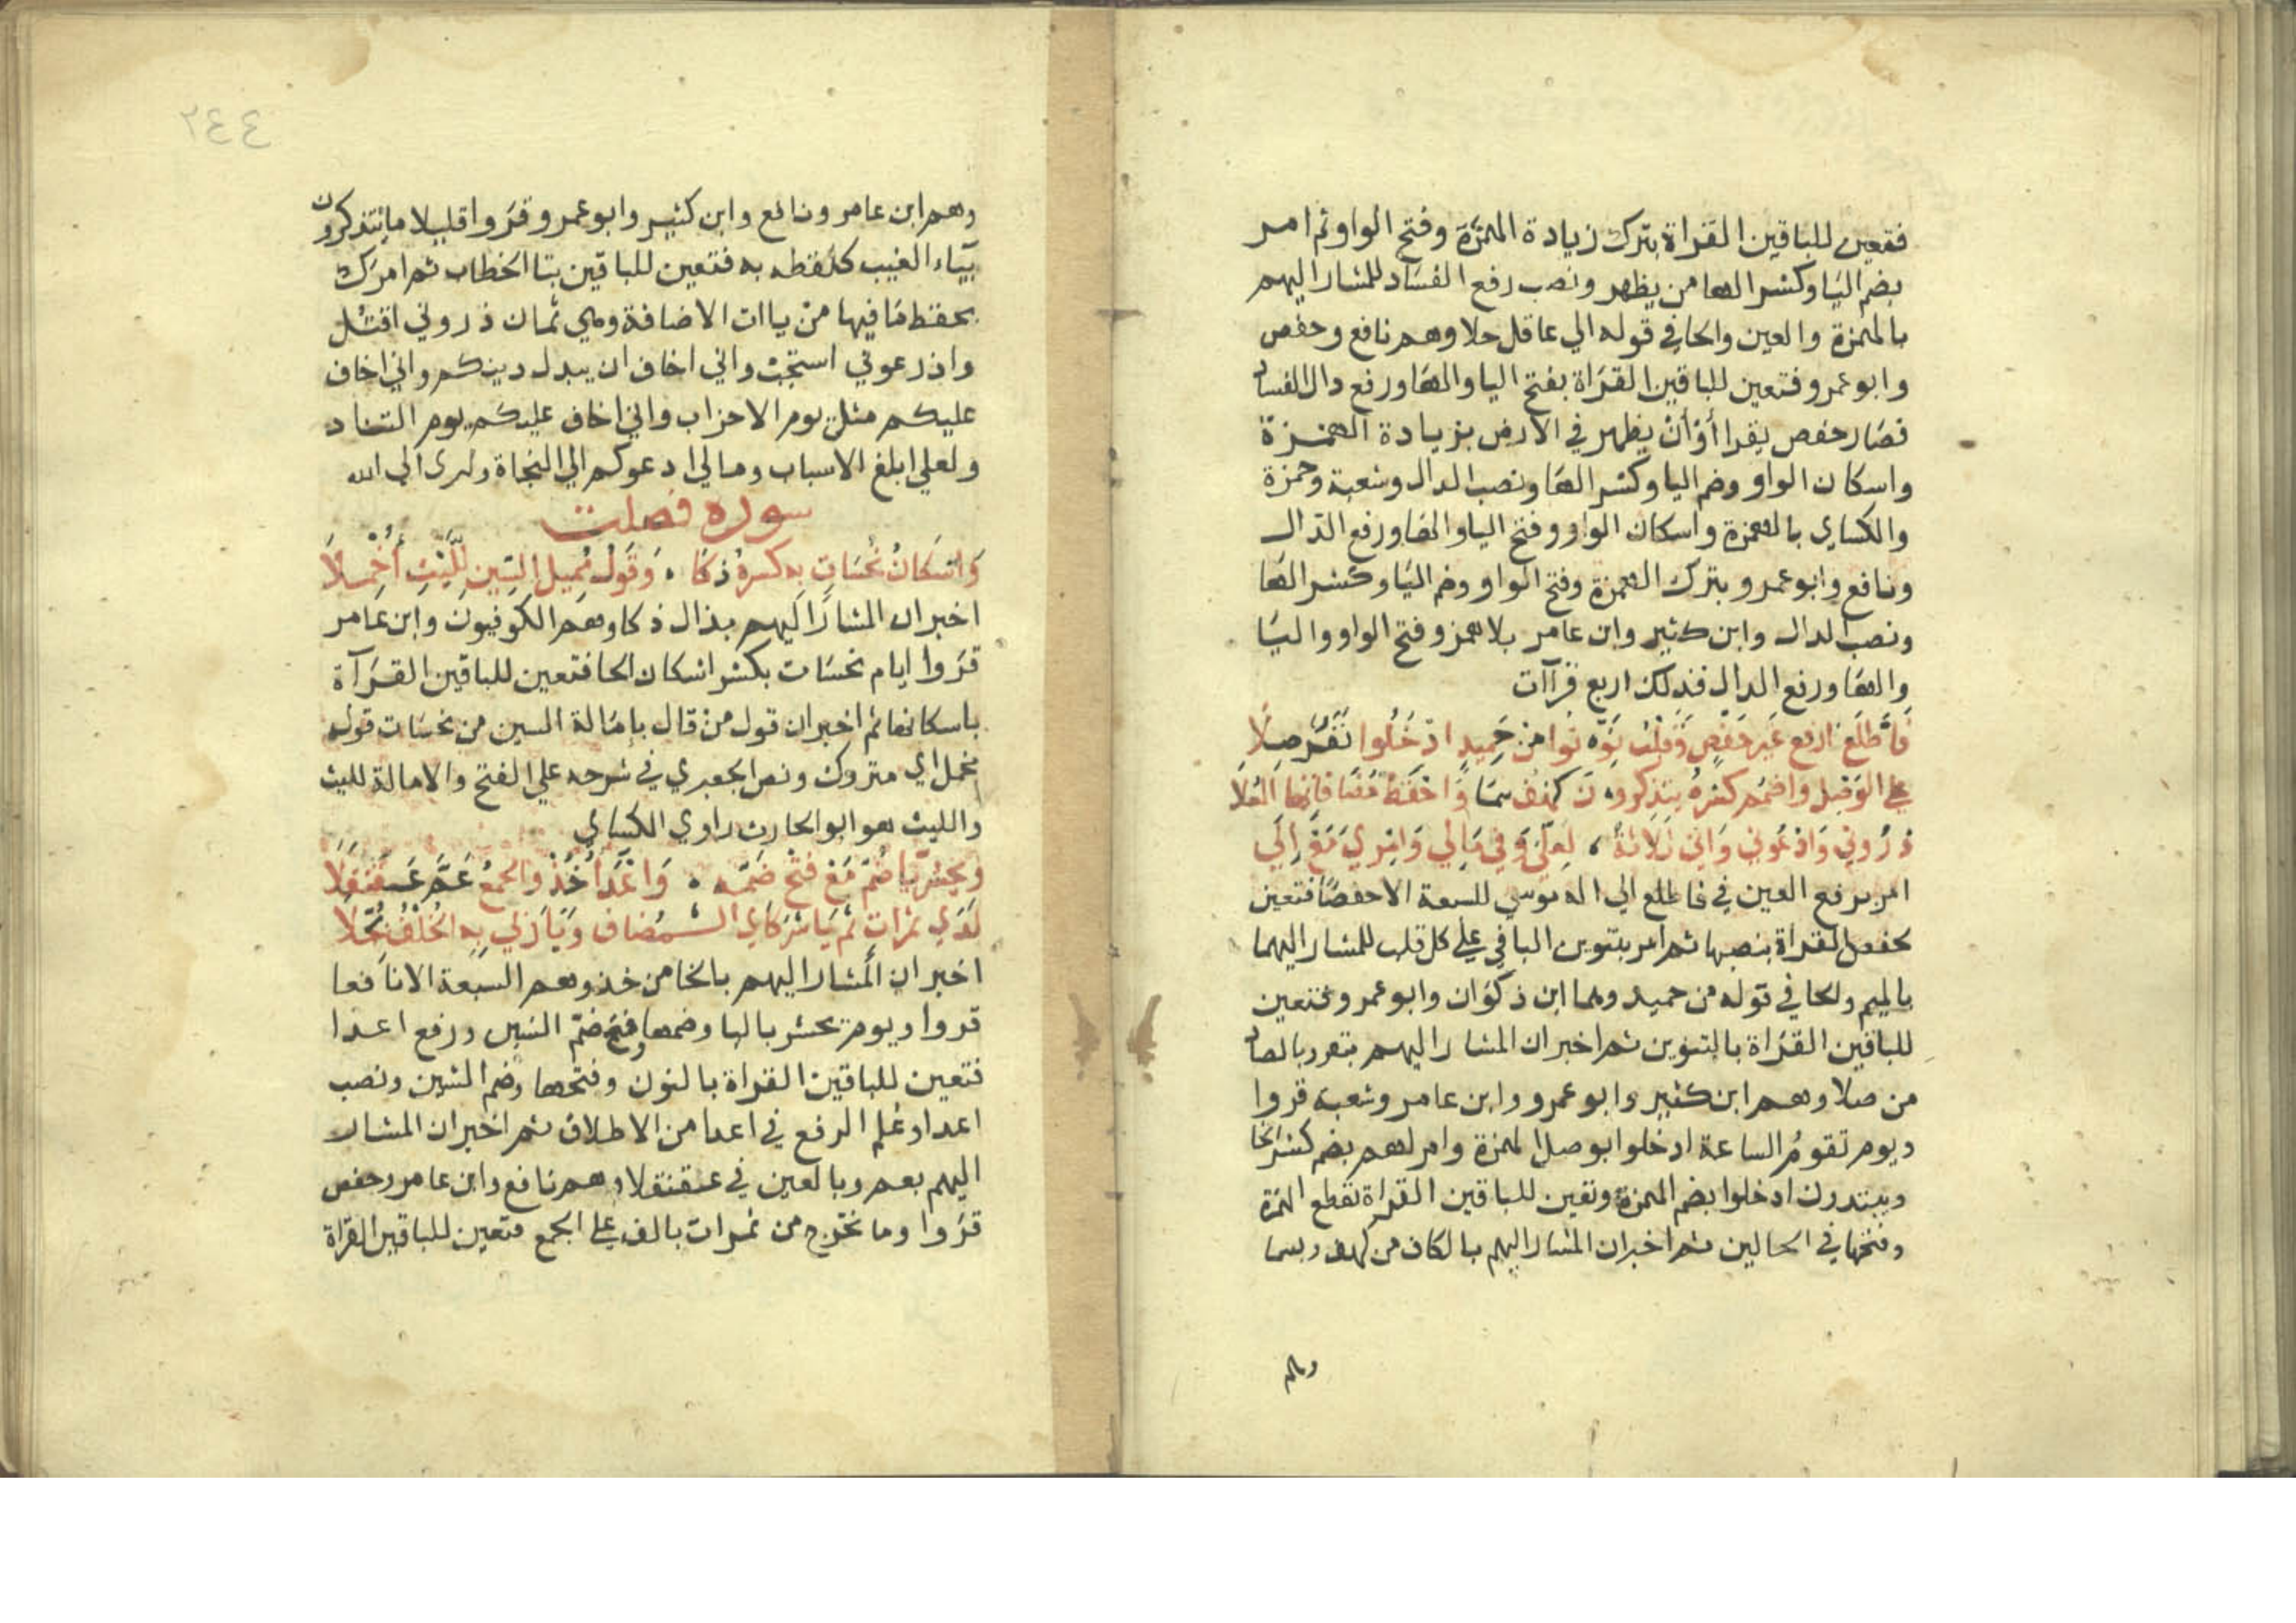 فتعين للباقين القراة بترك زيادة الهمزة وفتح الواو ثم امر
بضم اليا وكسر الها من يظهر ونصب رفع الفساد للمشار اليهم
بالهمزة والعين والحا في قوله الي عاقل حلا وهم نافع وحفص
وابو عمرو فتعين للباقين القراة بفتح اليا والها ورفع دال الفساد
فصار حفص يقرا أو أن يظهر في الارض بزيادة الهمزة
واسكان الواو وضم اليا وكسر الها ونصب الدال وشعبة وحمزة
والكساي بالهمزة واسكان الواو وفتح اليا والها ورفع الدال
ونافع وابو عمرو بترك الهمزة وفتح الواو وضم اليا وكسر الها
ونصب الدال وابن كثير وابن عامر بلا همز وفتح الواو واليا
والها ورفع الدال فذلك اربع قراآت
فاطلع ارفع غير حفص وقلب نونوا من حميد ادخلوا نفر صلا
علي الوصل واضمم كسره يتذكرون كهف سما واحفظ مضافاتها العلا
ذروني وادعوني واني ثلاثة ، لعلي وفي مالي وامري مع الي
امر برفع العين في فاطلع الي اله موسي للسبعة الا حفصا فتعين
لحفص القراة بنصبها ثم امر بتنوين البا في علي كل قلب للمشار اليهما
بالميم والحا في قوله من حميد وهما ابن ذكوان وابو عمرو فتعين
للباقين القراة بالتنوين ثم اخبر ان المشار اليهم بنفر وبالصاد
من صلا وهم ابن كثير وابو عمرو وابن عامر وشعبة قروا
ويوم تقوم الساعة ادخلوا بوصل الهمزة وامر لهم بضم كسر الخا
ويبتدون ادخلوا بضم الهمزة وتعين للباقين القراة بقطع الهمزة
وفتحها في الحالين ثم اخبر ان المشار اليهم بالكاف من كهف وبسما
وهم
٢٤٤
وهم ابن عامر ونافع وابن كثير وابو عمرو قروا قليلا ما يتذكرون
بياء الغيب كلفظه به فتعين للباقين بتا الخطاب ثم امرك
بحفظ ما فيها من ياات الاضافة وهي ثمان ذروني اقتل
وادعوني استجب واني اخاف ان يبدل دينكم واني اخاف
عليكم مثل يوم الاحزاب واني اخاف عليكم يوم التناد
ولعلي ابلغ الاسباب ومالي ادعوكم الي النجاة وامري الي الله
سورة فصلت
واسكان نحسات به كسره ذكا . وقول مميل السين لليث أخملا
اخبر ان المشار اليهم بذال ذكا وهم الكوفيون وابن عامر
قروا ايام نحسات بكسر اسكان الحا فتعين للباقين القرآة
باسكانها ثم اخبر ان قول من قال بإمالة السين من نحسات قوله
مخمل اي متروك ونص الجعبري في شرحه علي الفتح والامالة لليث
والليث هو ابو الحارث راوي الكساي
ونحشر يا ضم مع فتح ضمه . وأعدا خذ والجمع عم عقنقلا
لدي ثمرات ثم يا شركاي المضاف ويا ربي به الخلف بجلا
اخبر ان المشار اليهم بالخا من خذ وهم السبعة الا نافعا
قروا ويوم يحشر باليا وضمها وفتح ضم الشين ورفع اعدا
فتعين للباقين القراة بالنون وفتحها وضم الشين ونصب
اعدا وعلم الرفع في اعدا من الاطلاق ثم اخبر ان المشار
اليهم بعم وبالعين في عقنقلا وهم نافع وابن عامر وحفص
قروا وما تخرج من ثمرات بالف علي الجمع فتعين للباقين القراة